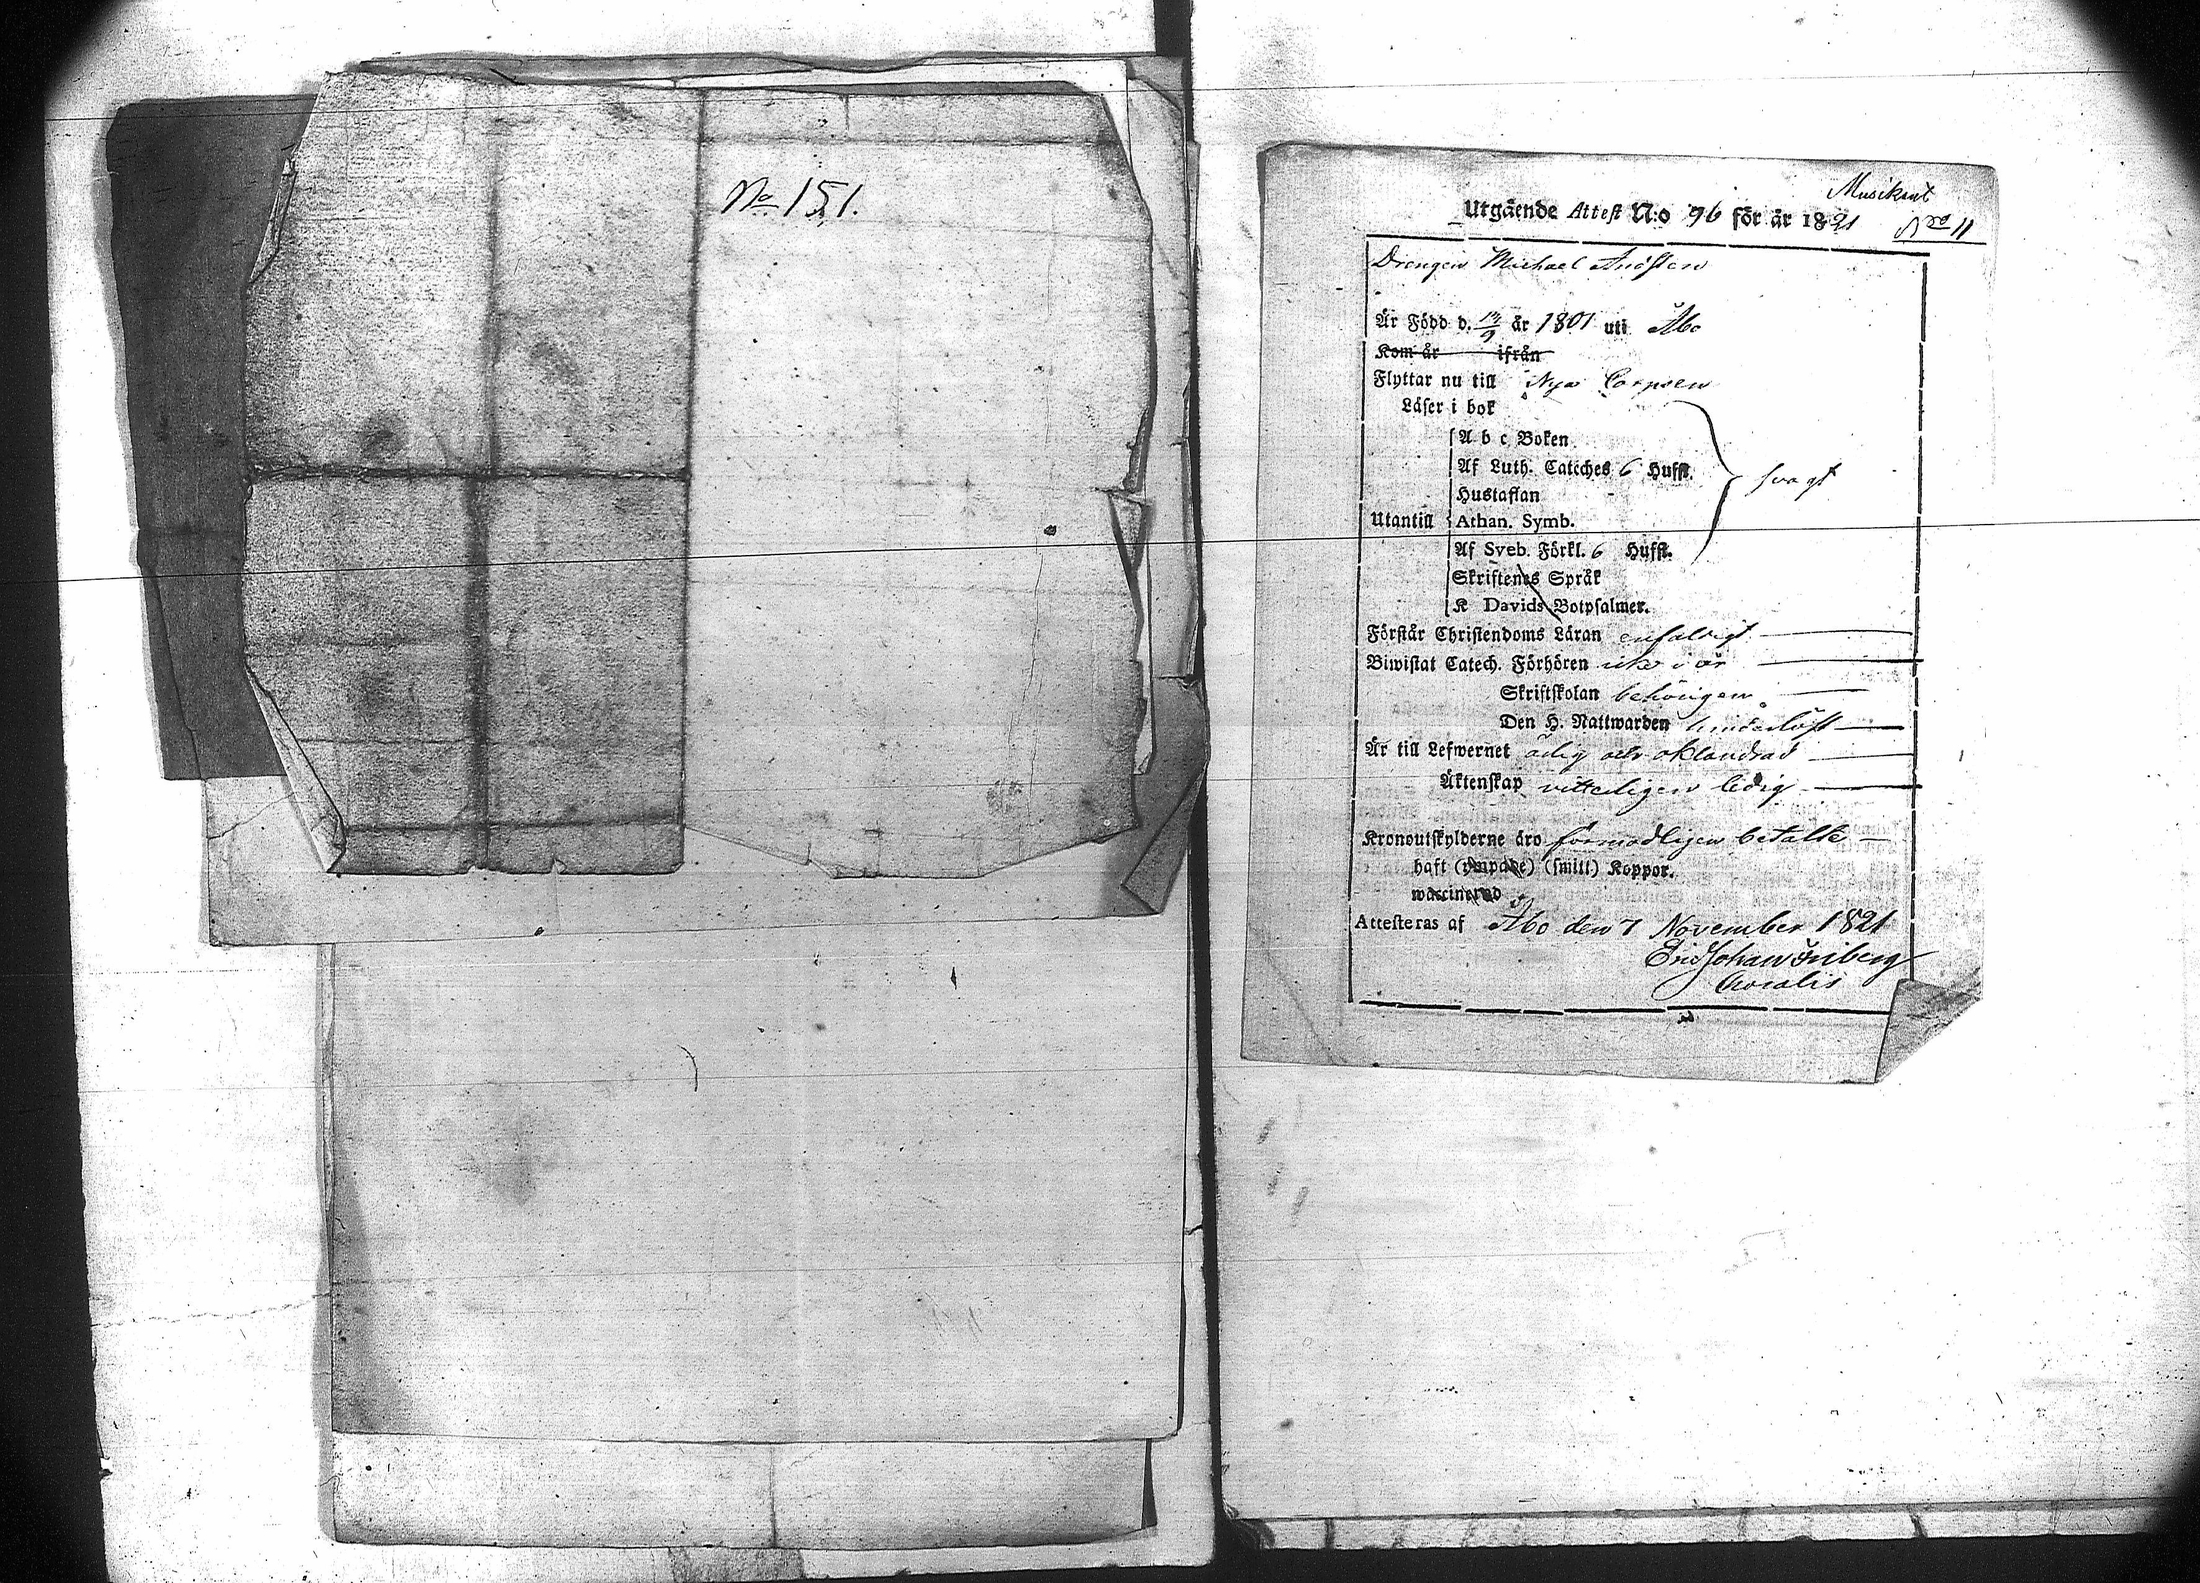 No 151.
Musikant
Utgående Attest N:o 96 för år 1821
Nro 11
Drengen Michael
Är Född d. 13/9 år 1801 uti Åbo
Kom år ifrån
Flyttar nu till Nya Corpsen
Läser i bok
A b c Boken
Af Luth. Cateches 6 Hufst.
svagt
Hustaflan
Utantill Athan. Symb.
Af Sveb. Förkl. 6 Hufst.
Skriftenes Språk
K Davids Botpsalmer.
Förstår Christendoms Läran enfaldigt
Biwistat Catech. Förhören icke i år
Skriftskolan behörigen
Den H. Nattwarden hinderlöst
Är till Lefwernet ärlig och oklandrad
Äktenskap vitterligen ledig
Kronoutskylderne äro förmodligen betalte
haft (ympade) (smitt) Koppor.
waccinerad
Attesteras af Åbo den 7 November 1821
Eric Johan Friberg